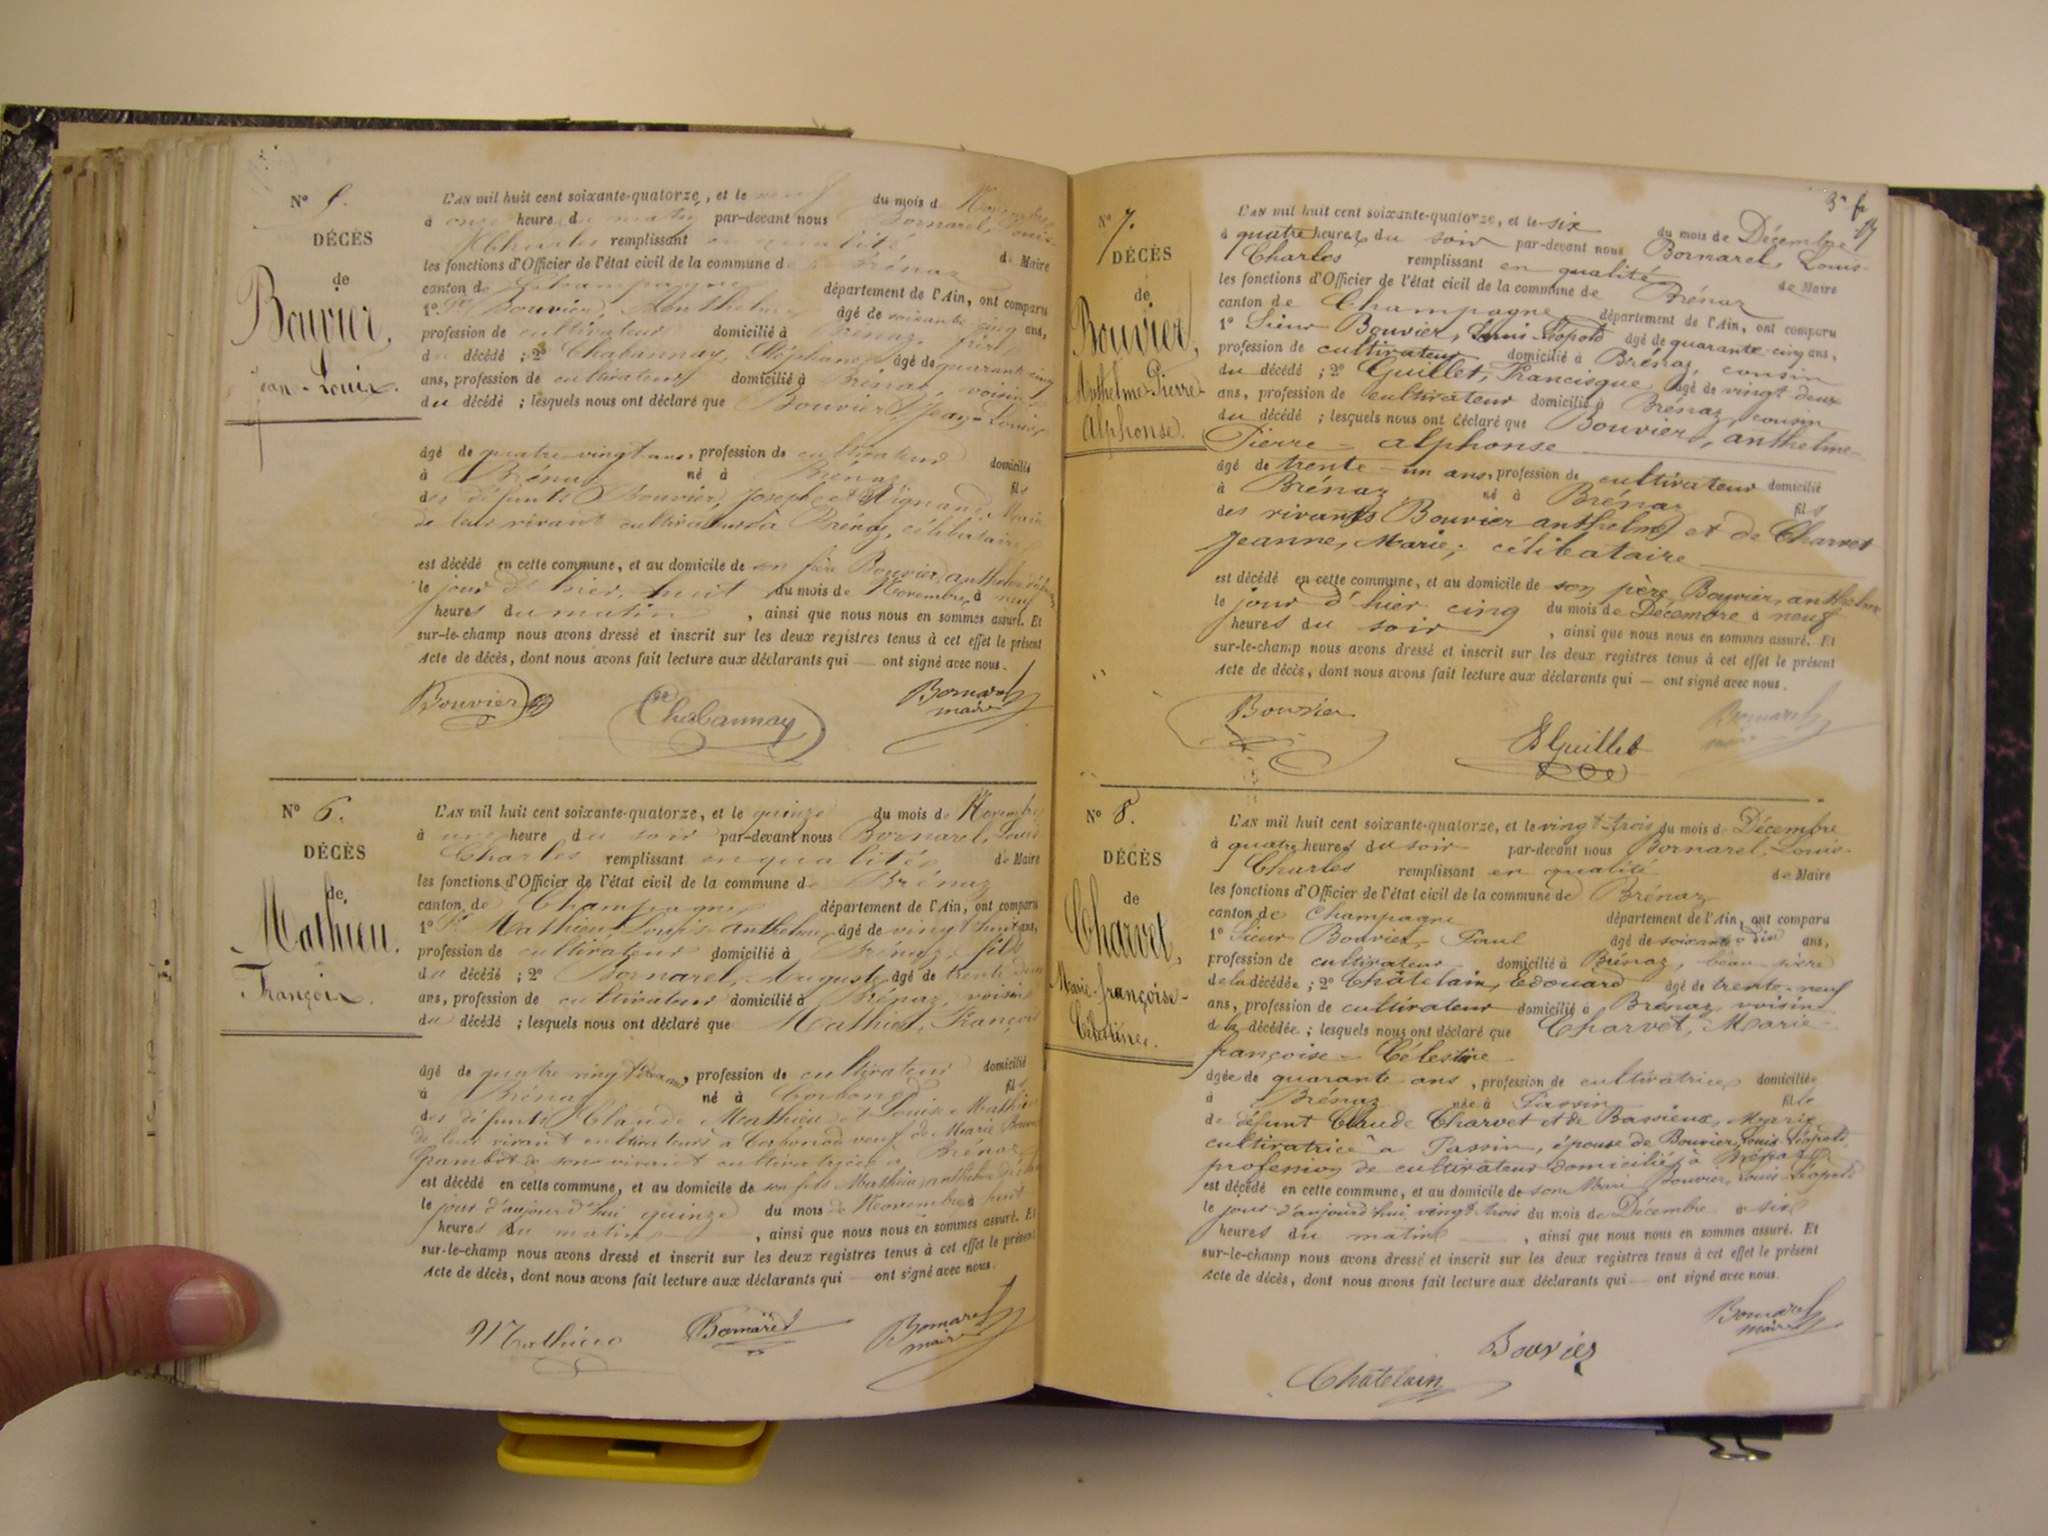 N° 5.
DÉCÈS
de
Bouvier,
Jean-Louis.
L'AN mil huit cent soixante-quatorze, et le neuf du mois de Novembre
à onze heures du matin par-devant nous Bornarel, Louis-
Charles remplissant en qualité de Maire
les fonctions d'Officier de l'état civil de la commune de Brénaz
canton de Champagne département de l'Ain, ont comparu
1° Sr Bouvier, Anthelme âgé de soixante cinq ans,
profession de cultivateur domicilié à Brénaz, frère
du décédé ; 2° Chabannay, Stéphane âgé de quarante cinq
ans, profession de cultivateur domicilié à Brénaz, voisin
du décédé ; lesquels nous ont déclaré que Bouvier, Jean-Louis,
âgé de quatre-vingt ans, profession de cultivateur domicilié
à Brénaz né à Brénaz fils
des défunts Bouvier, Joseph et
de leur vivant cultivateurs à Brénaz, célibataire
est décédé en cette commune, et au domicile de son frère Bouvier, anthelme
le jour d'hier, huit du mois de Novembre à neuf
heures du matin, ainsi que nous nous en sommes assuré. Et
sur-le-champ nous avons dressé et inscrit sur les deux registres tenus à cet effet le présent
Acte de décès, dont nous avons fait lecture aux déclarants qui — ont signé avec nous.
Bouvier Chabannay Bornarel
maire
N° 6.
DÉCÈS
de
Mathieu,
François.
L'AN mil huit cent soixante-quatorze, et le quinze du mois de Novembre
à une heure du soir par-devant nous Bornarel, Louis
Charles remplissant en qualité de Maire
les fonctions d'Officier de l'état civil de la commune de Brénaz
canton de Champagne département de l'Ain, ont comparu
1° Sr Mathieu, Louis anthelme, âgé de vingt huit ans,
profession de cultivateur domicilié à Brénaz, fils
du décédé ; 2° Bornarel, Auguste âgé de trente deux
ans, profession de cultivateur domicilié à Brénaz, voisin
du décédé ; lesquels nous ont déclaré que Mathieu, François
âgé de quatre vingt ans, profession de cultivateur domicilié
à Brénaz né à Corbonod fils
des défunts Claude Mathieu et Louise Mathieu
de leur vivant cultivateurs à Corbonod veuf de Marie
de son vivant cultivatrice à Brénaz
est décédé en cette commune, et au domicile de son fils Mathieu, anthelme
le jour d'aujourd'hui quinze du mois de Novembre à huit
heures du matin, ainsi que nous nous en sommes assuré. Et
sur-le-champ nous avons dressé et inscrit sur les deux registres tenus à cet effet le présent
Acte de décès, dont nous avons fait lecture aux déclarants qui — ont signé avec nous.
Mathieu Bornarel Bornarel
maire
N° 7.
DÉCÈS
de
Bouvier,
Anthelme-Pierre-
Alphonse.
L'AN mil huit cent soixante-quatorze, et le six du mois de Décembre
à quatre heures du soir par-devant nous Bornarel, Louis-
Charles remplissant en qualité de Maire
les fonctions d'Officier de l'état civil de la commune de Brénaz
canton de Champagne département de l'Ain, ont comparu
1° Sieur Bouvier, Louis Léopold âgé de quarante-cinq ans,
profession de cultivateur domicilié à Brénaz, cousin
du décédé ; 2° Guillet, Francisque, âgé de vingt deux
ans, profession de cultivateur domicilié à Brénaz, cousin
du décédé ; lesquels nous ont déclaré que Bouvier, anthelme-
Pierre-alphonse
âgé de trente-un ans, profession de cultivateur domicilié
à Brénaz né à Brénaz fils
des vivants Bouvier anthelme et de Charvet
Jeanne, Marie; célibataire
est décédé en cette commune, et au domicile de son père, Bouvier, anthelme
le jour d'hier cinq du mois de Décembre à neuf
heures du soir, ainsi que nous nous en sommes assuré. Et
sur-le-champ nous avons dressé et inscrit sur les deux registres tenus à cet effet le présent
Acte de décès, dont nous avons fait lecture aux déclarants qui — ont signé avec nous.
Bouvier Guillet Bornarel
maire
N° 8.
DÉCÈS
de
Charvet,
Marie-françoise-
Célestine.
L'AN mil huit cent soixante-quatorze, et le vingt-trois du mois de Décembre
à quatre heures du soir par-devant nous Bornarel, Louis-
Charles remplissant en qualité de Maire
les fonctions d'Officier de l'état civil de la commune de Brénaz
canton de Champagne département de l'Ain, ont comparu
1° Sieur Bouvier, Paul âgé de soixante-dix ans,
profession de cultivateur domicilié à Brénaz, beau-père
de la décédée ; 2° Châtelain, Edouard âgé de trente-neuf
ans, profession de cultivateur domicilié à Brénaz, voisin
de la décédée ; lesquels nous ont déclaré que Charvet, Marie-
françoise-Célestine
âgée de quarante ans, profession de cultivatrice domiciliée
à Brénaz née à Passin fille
de défunt Claude Charvet et de Bassieux, Marie
cultivatrice à Passin, épouse de Bouvier, Louis-Léopold,
profession de cultivateur domicilié à Brénaz
est décédé en cette commune, et au domicile de son Mari Bouvier, Louis-Léopold
le jour d'aujourd'hui vingt-trois du mois de Décembre à six
heures du matin, ainsi que nous nous en sommes assuré. Et
sur-le-champ nous avons dressé et inscrit sur les deux registres tenus à cet effet le présent
Acte de décès, dont nous avons fait lecture aux déclarants qui — ont signé avec nous.
Bornarel
maire
Bouvier
Chatelain